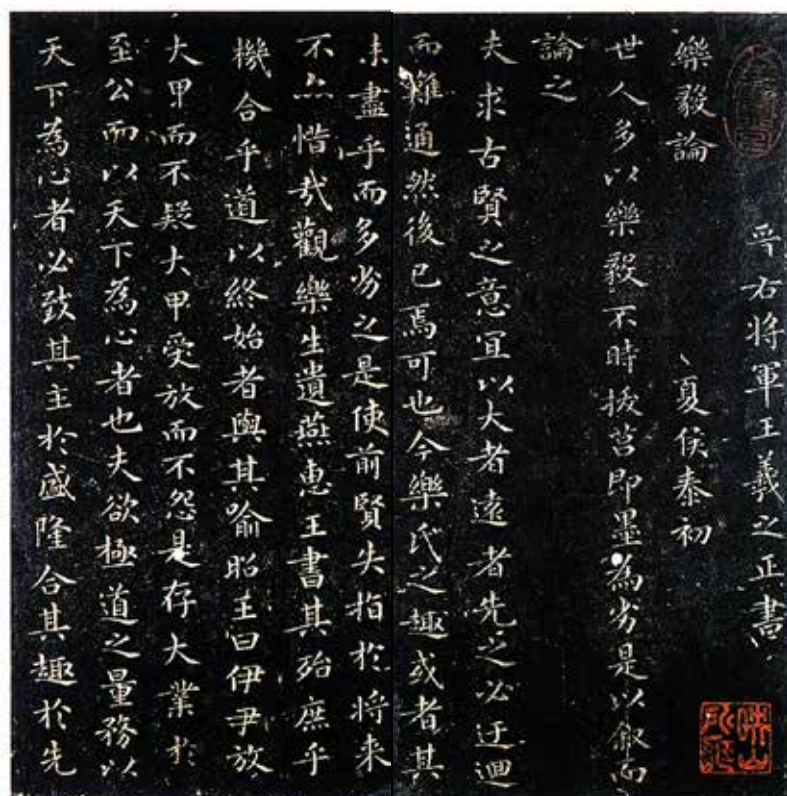 晉右將軍王羲之正書
樂毅論　夏侯泰初
世人多以樂毅不時拔莒即墨為劣是以叙而
論之
夫求古賢之意宜以大者遠者先之必迂迴
而難通然後已焉可也今樂氏之趣或者其
未盡乎而多劣之是使前賢失指於將来
不亦惜㦲觀樂生遺燕惠王書其殆庶乎
機合乎道以終始者與其喻昭王曰伊尹放
大甲而不疑大甲受放而不怨是存大業於
至公而以天下為心者也夫欲極道之量務以
天下為心者必致其主於盛隆合其趣於先